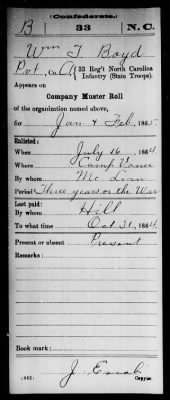 (Confederate.)
B 33 N.C.
Wm T Boyd
Pvt, Co. A, 33 Reg't North Carolina
Infantry (State Troops).
Appears on
Company Muster Roll
of the organization named above,
for Jan & Feb, 1865.
Enlisted:
When July 16, 1864
Where Camp Vance
By whom Mc Lean
Period Three years or the War
Last paid:
By whom Hill
To what time Oct 31, 1864.
Present or absent Present
Remarks:
Book mark:
(642)
J
Copyist.